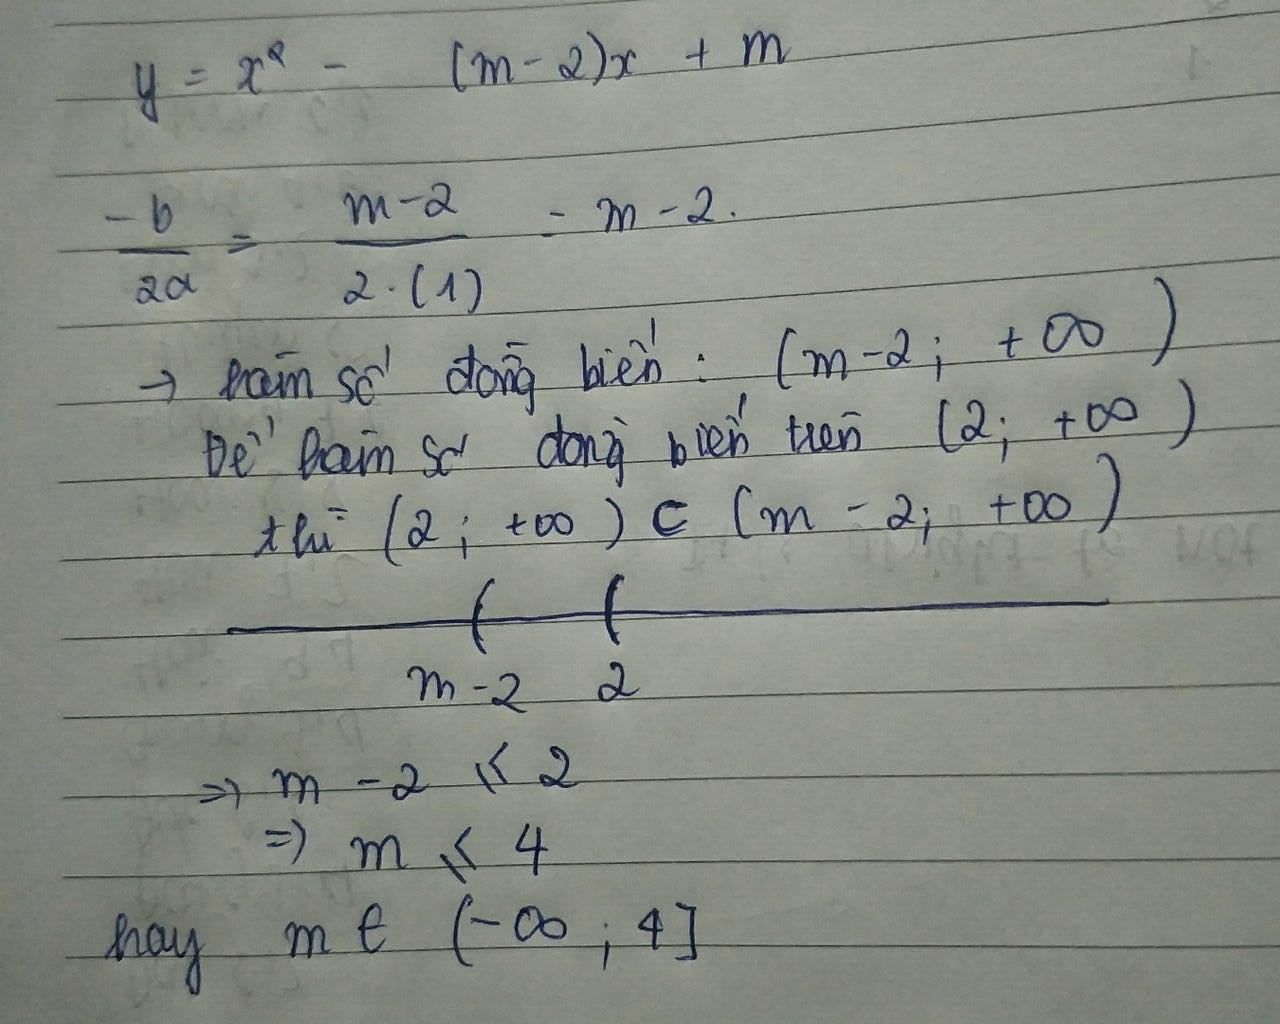 y = x² - (m-2)x + m
-b/2a = m-2/2.(1) = m-2.
→ hàm số đồng biến : (m-2; +∞)
Để hàm số đồng biến trên (2; +∞)
thì (2; +∞) ⊂ (m-2; +∞)
m-2 2
=> m-2 ≤ 2
=> m ≤ 4
hay m ∈ (-∞; 4]